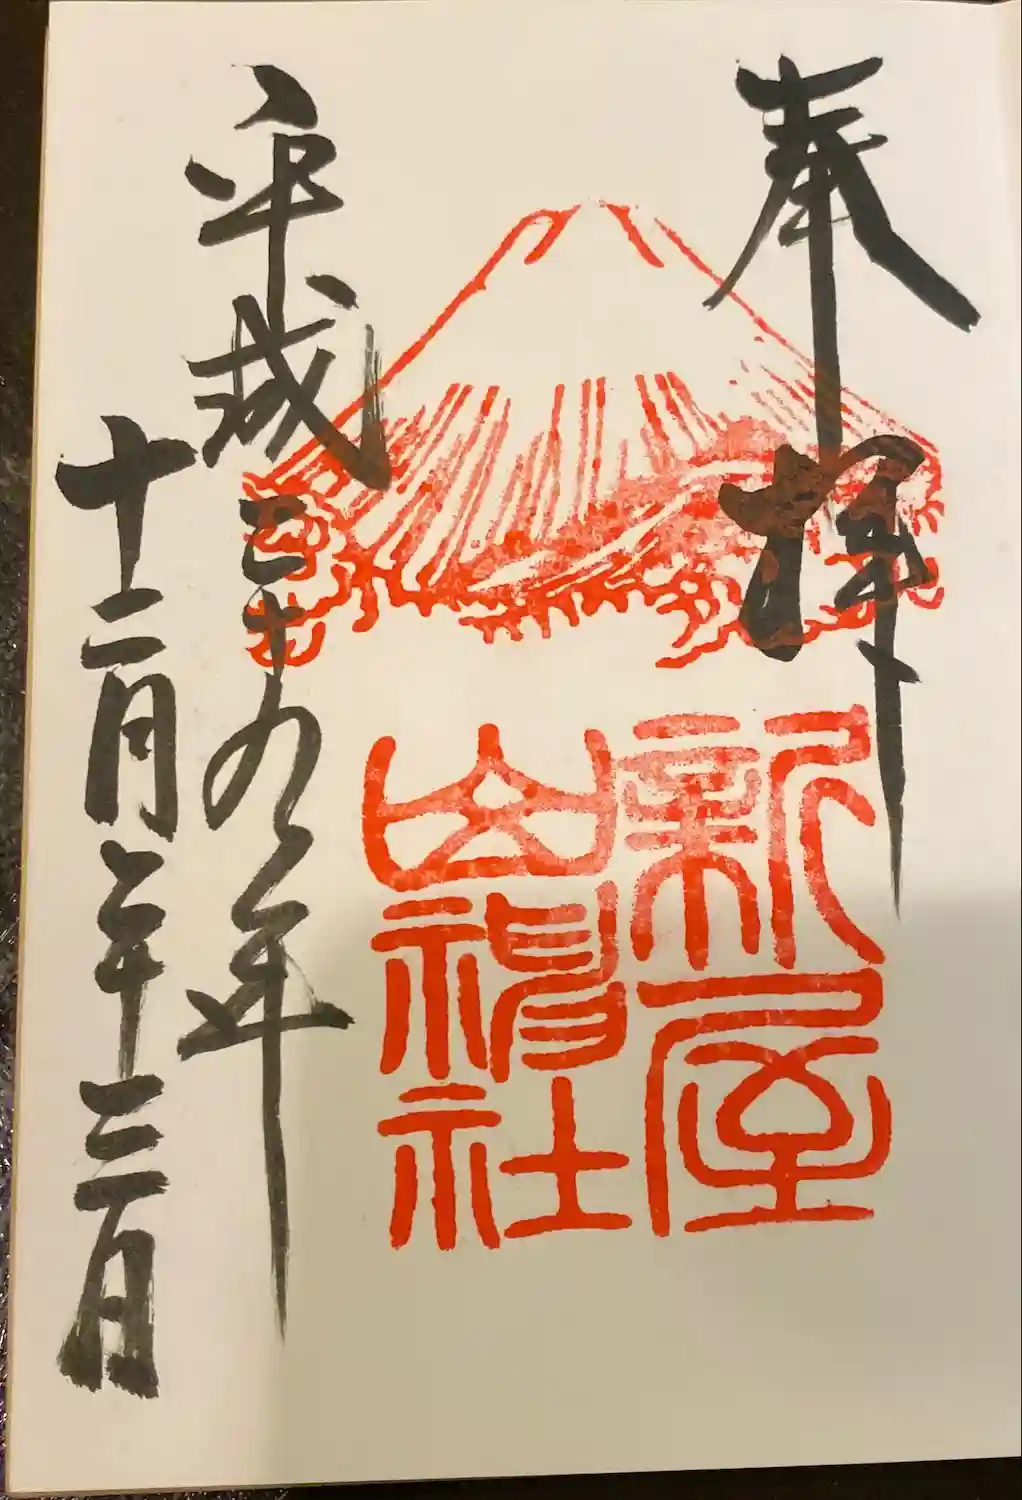 奉拝
新屋
山神社
平成二十九年
十二月二十三日